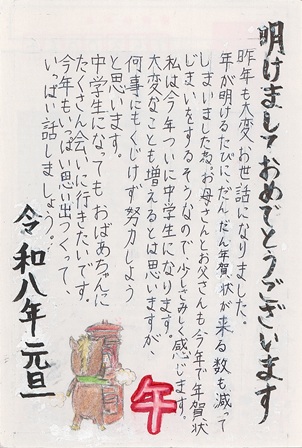 明けましておめでとうございます
昨年も大変お世話になりました。
年が明けるたびに、だんだん年賀状が来る数も減って
しまいました為、お母さんとお父さんも今年で年賀状
じまいをするそうなので、少しさみしく感じます。
私は今年ついに中学生になります。
大変なことも増えるとは思いますが、
何事にもくじけず努力しよう
と思います。
中学生になってもおばあちゃんに
たくさん会いに行きたいです。
今年もいっぱい思い出つくって、
いっぱい話しましょう!
令和八年元旦
午